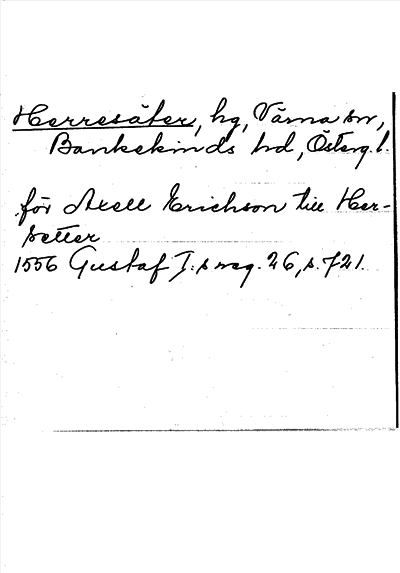 Herresäter, hg, Värna sn,
Bankekinds hd, Österg. l.
för Axell Erichson till Her-
setter
1556 Gustaf I:s reg. 26, s. 721.